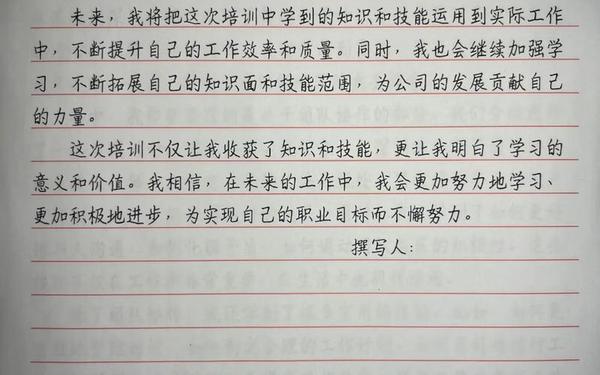 未来，我将把这次培训中学到的知识和技能运用到实际工作
中，不断提升自己的工作效率和质量。同时，我也会继续加强学
习，不断拓展自己的知识面和技能范围，为公司的发展贡献自己
的力量。
这次培训不仅让我收获了知识和技能，更让我明白了学习的
意义和价值。我相信，在未来的工作中，我会更加努力地学习、
更加积极地进步，为实现自己的职业目标而不懈努力。
撰写人：